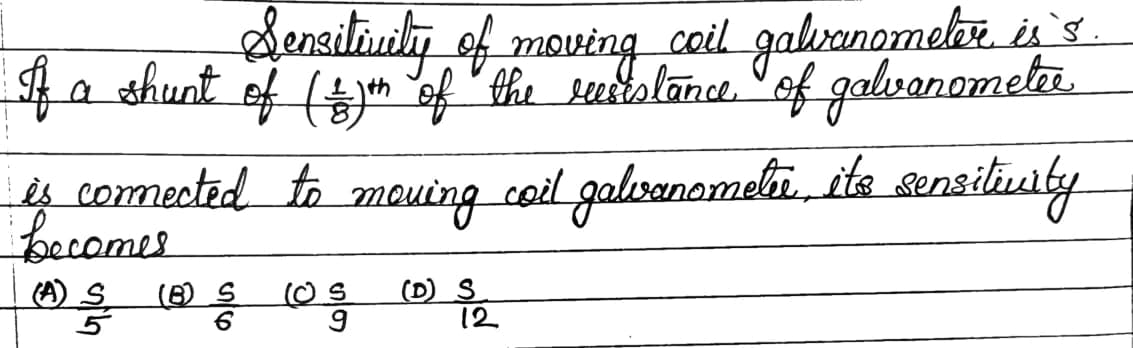 Sensitivity of moving coil galvanometer is 's.
If a shunt of (1/8)th of the resistance of galvanometer
is connected to moving coil galvanometer, its sensitivity
becomes
(A) S/5 (B) S/6 (C) S/9 (D) S/12